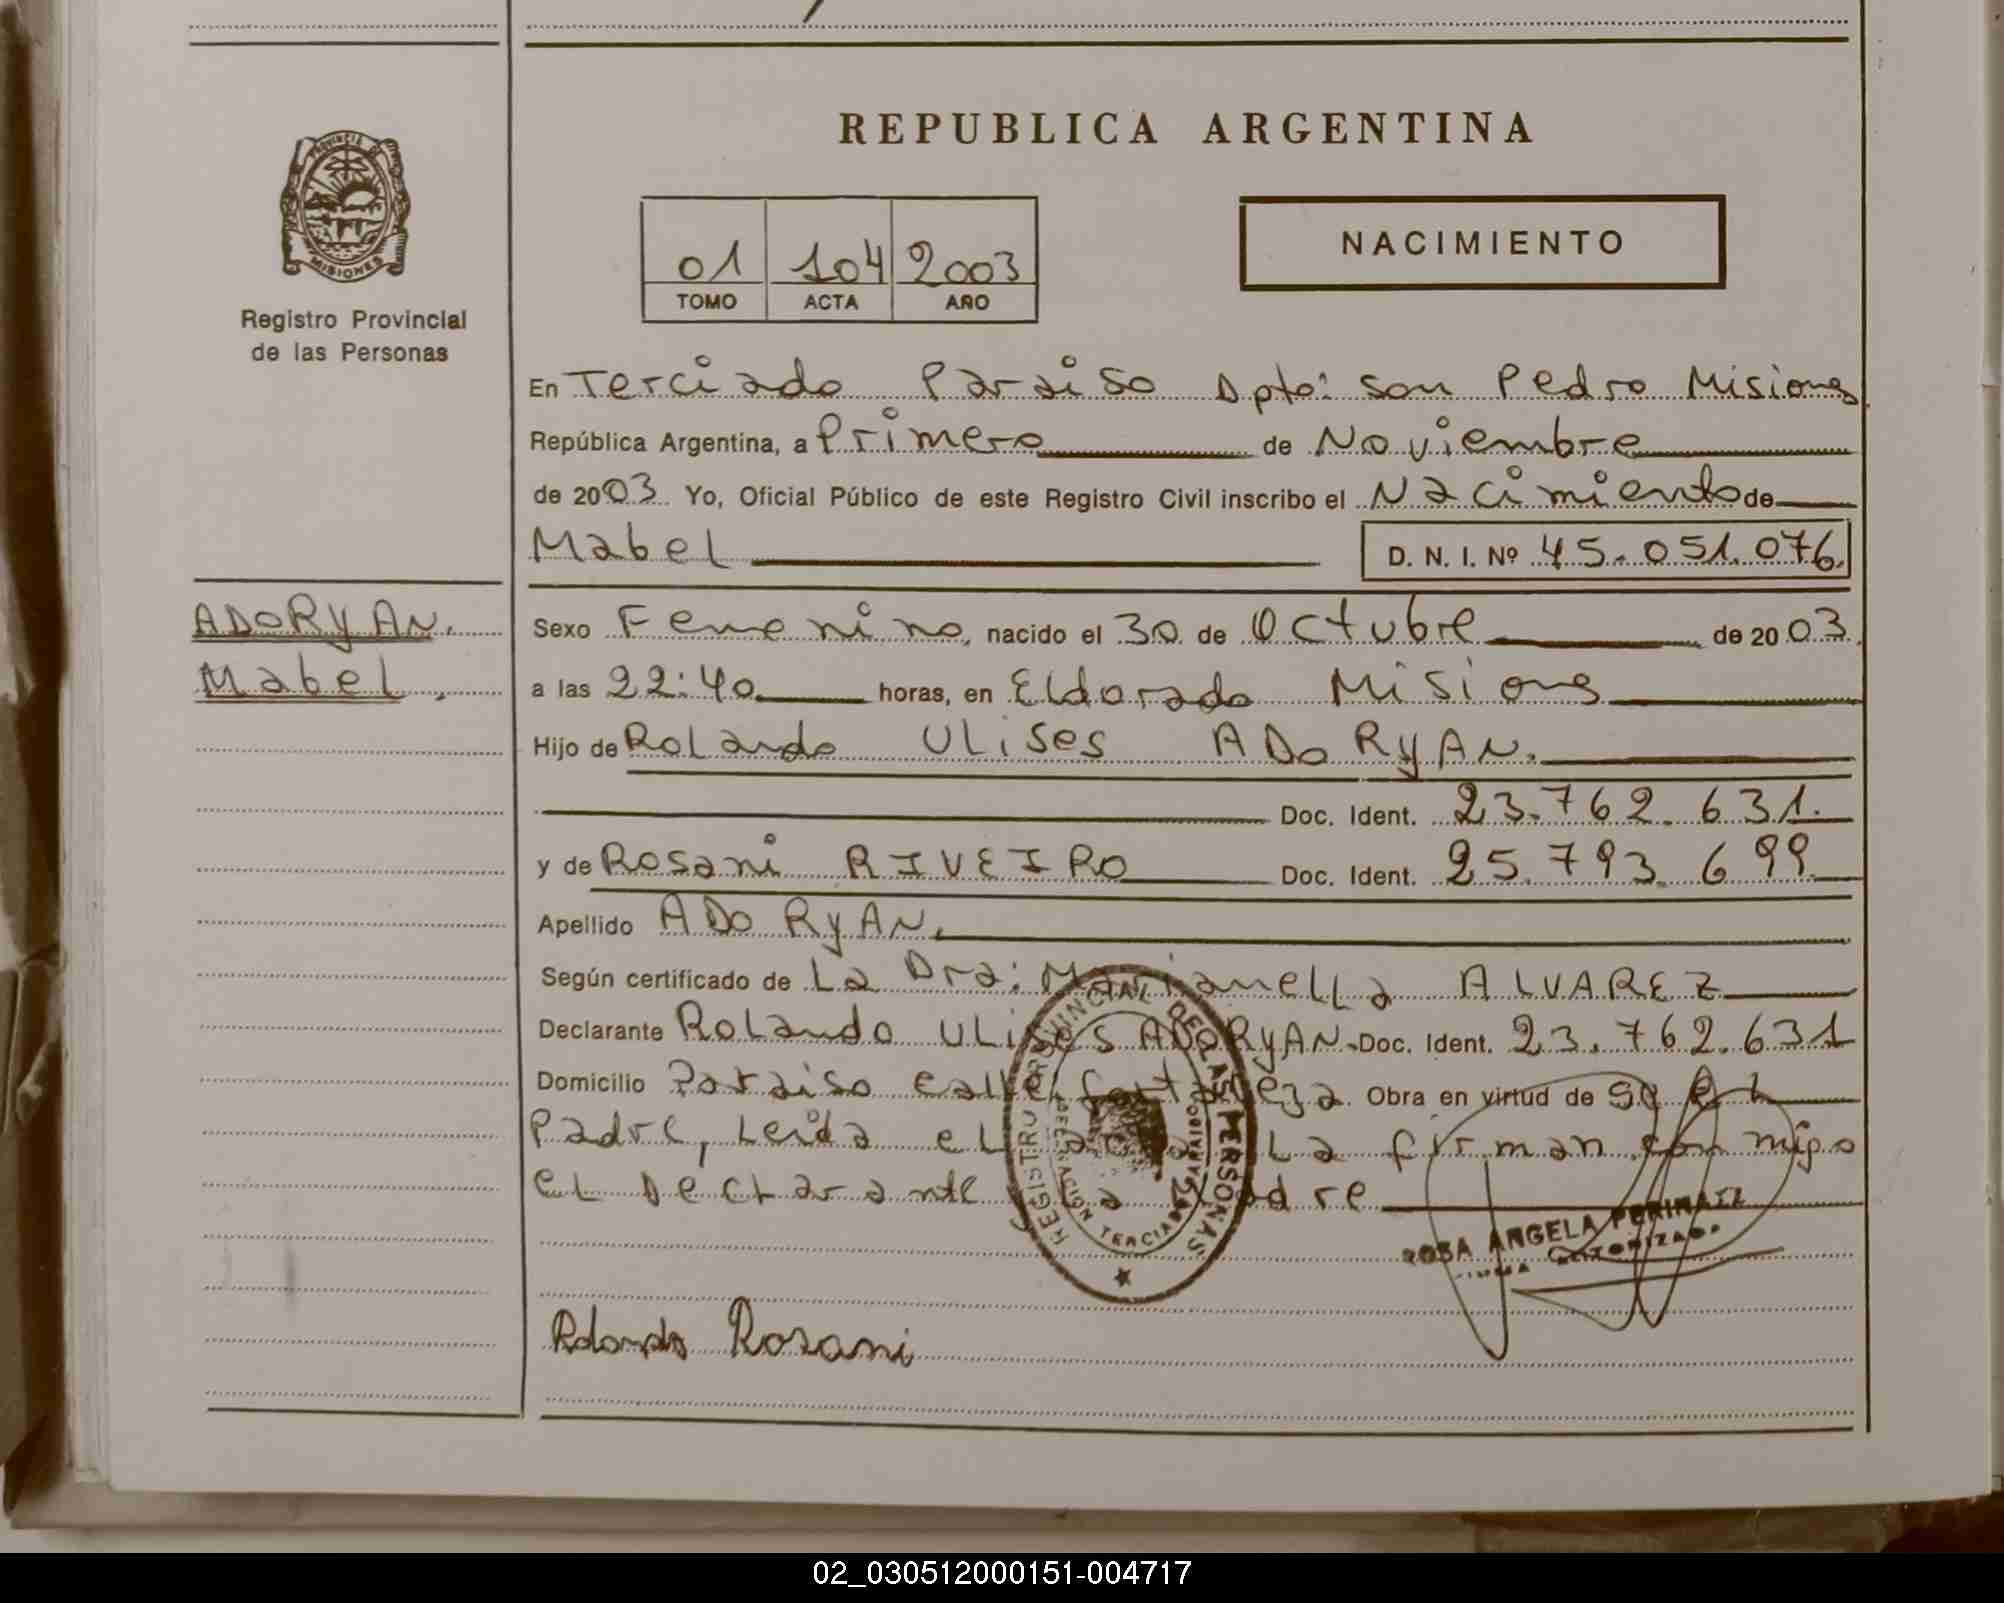 REPUBLICA ARGENTINA
PROVINCIA DE
MISIONES
Registro Provincial
de las Personas
01 104 2003
TOMO ACTA AÑO
NACIMIENTO
En Terciado Paraiso Dpto: san Pedro Misiones
República Argentina, a Primero de Noviembre
de 2003 Yo, Oficial Público de este Registro Civil inscribo el Nacimiento de
Mabel D. N. I. Nº 45.051.076.
ADORYAN.
Mabel.
Sexo Femenino, nacido el 30 de Octubre de 2003
a las 22:40 horas, en Eldorado Misiones
Hijo de Rolando Ulises ADORYAN.
Doc. Ident. 23.762.631.
y de Rosani RIVEIRO Doc. Ident. 25.793.699
Apellido ADORYAN.
Según certificado de La Dra: Marianella ALVAREZ
Declarante Rolando Ulises ADORYAN. Doc. Ident. 23.762.631
Domicilio Paraiso calle fortaleza Obra en virtud de ser el
Padre, Leida el acta La firman con migo
el Declarante La Madre
REGISTRO PROVINCIAL DE LAS PERSONAS
DELEGACION TERCIADO PARAISO
ROSA ANGELA
FIRMA AUTORIZADA
Rolando Rosani
02_030512000151-004717